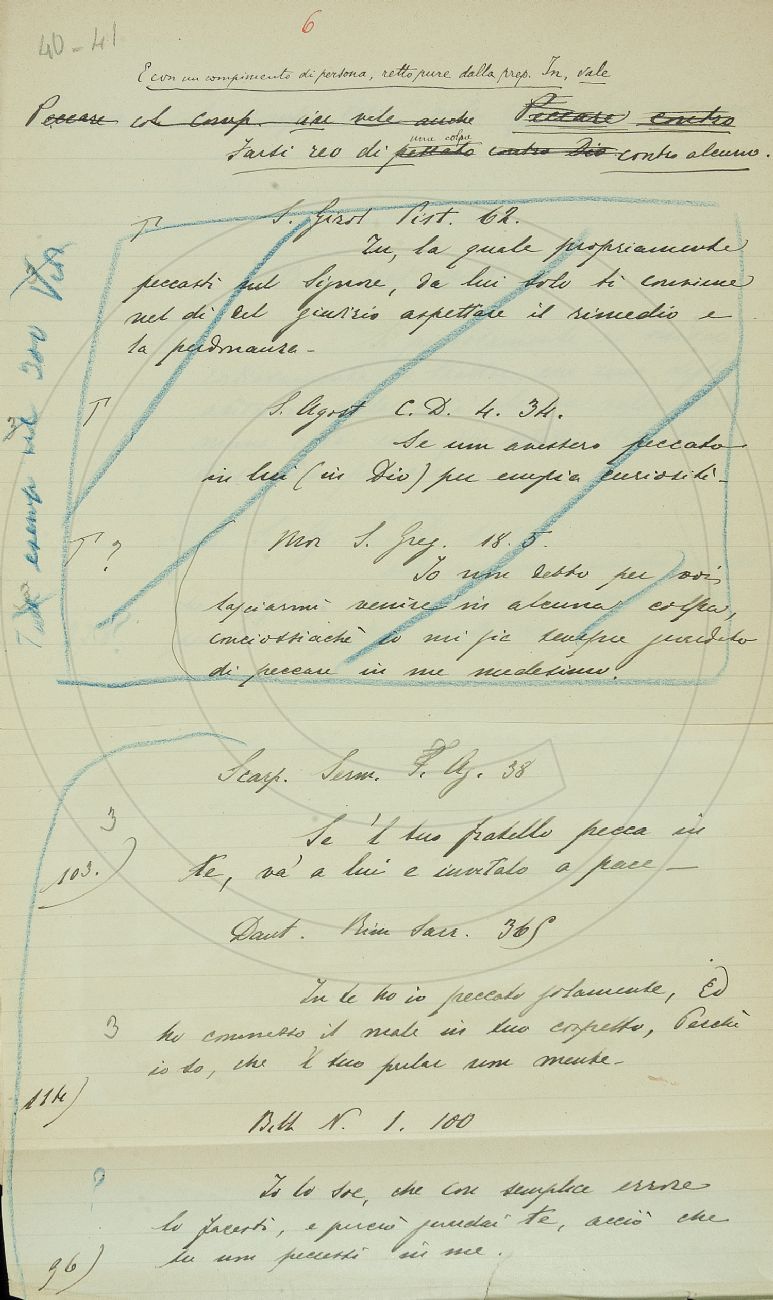 6
40-41
E con un compimento di persona, retto pure dalla prep. In, vale
Peccare col comp. vale anche Peccare contro
una colpa
Farsi reo di peccato contro Dio contro alcuno.
T S. Girol. Pist. 62.
In, la quale propriamente
peccasti nel Signore, da lui solo ti conviene
nel dì del giudizio aspettare il rimedio e
la perdonanza -
T S. Agost. C. D. 4. 34.
Se non avessero peccato
in lui (in Dio) per empia curiosità -
T? Mor. S. Greg. 18. 5.
Io non debbo per voi
lasciarmi venire in alcuna colpa,
conciossiachè io mi sia sempre guardato
di peccare in me medesimo.
esempi nel 300
Scarp. Serm. S. Ag. 38
3
Se 'l tuo fratello pecca in
103.) te, va' a lui e invitalo a pace -
Dant. Rim. Sacr. 365
In te ho io peccato solamente, Ed
3 ho commesso il male in tuo cospetto, Perchè
io so, che 'l tuo parlar non mente -
114)
Bibb. N. 1. 100
?
Io lo soe, che con semplice errore
lo facesti, e perciò guardai te, acciò che
96) tu non peccassi in me.